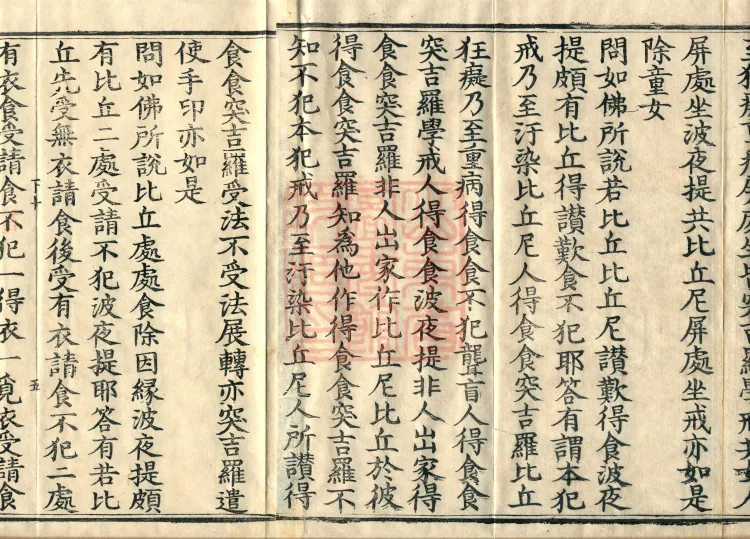 屏處坐波夜提共比丘尼屏處坐戒亦如是
除童女
問如佛所說若比丘比丘尼讃歎得食波夜
提頗有比丘得讃歎食不犯耶答有謂本犯
戒乃至汙染比丘尼人得食食突吉羅比丘
狂癡乃至重病得食食不犯聾盲人得食食
突吉羅學戒人得食食波夜提非人出家得
食食突吉羅非人出家作比丘尼比丘於彼
得食食突吉羅知爲他作得食食突吉羅不
知不犯本犯戒乃至汙染比丘尼人所讃得
食食突吉羅受法不受法展轉亦突吉羅遣
使手印亦如是
問如佛所說比丘處處食除因縁波夜提頗
有比丘二處受請不犯波夜提耶答有若比
丘先受無衣請食後受有衣請食不犯二處
下十 五
有衣食受請食不犯一得衣一覓衣受請食